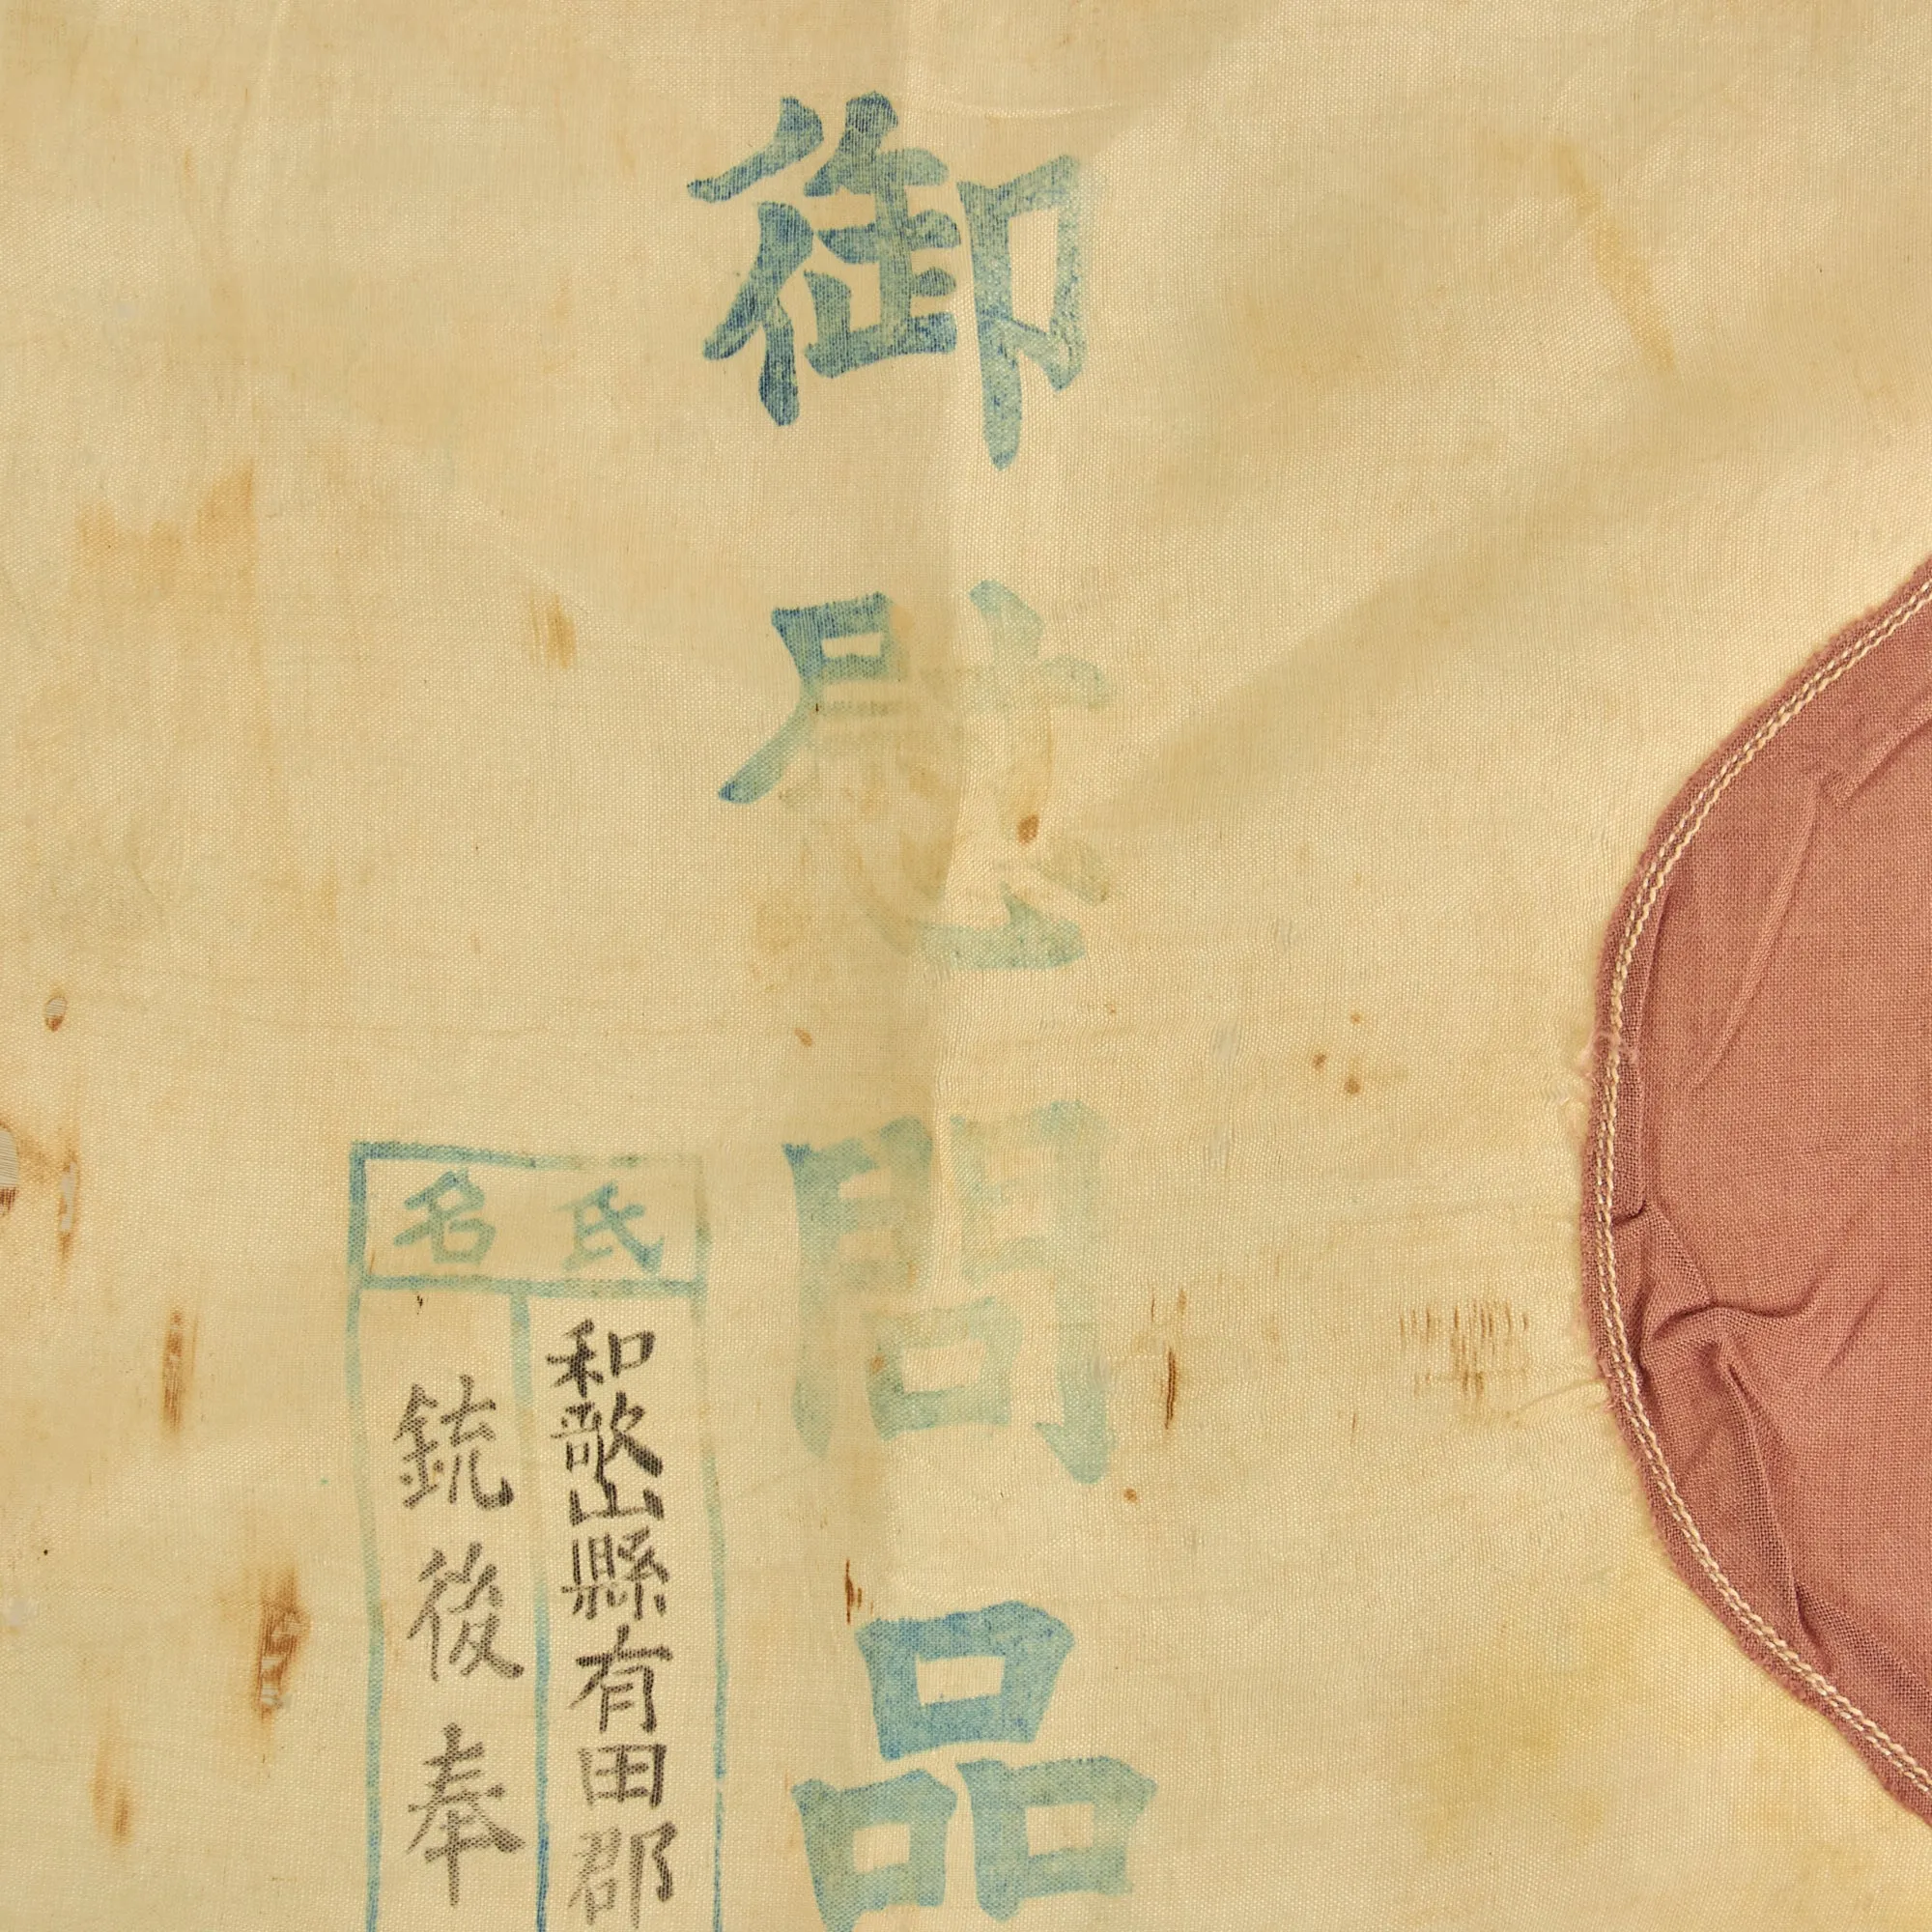 御慰問品
氏名
和歌山縣有田郡
銃後奉